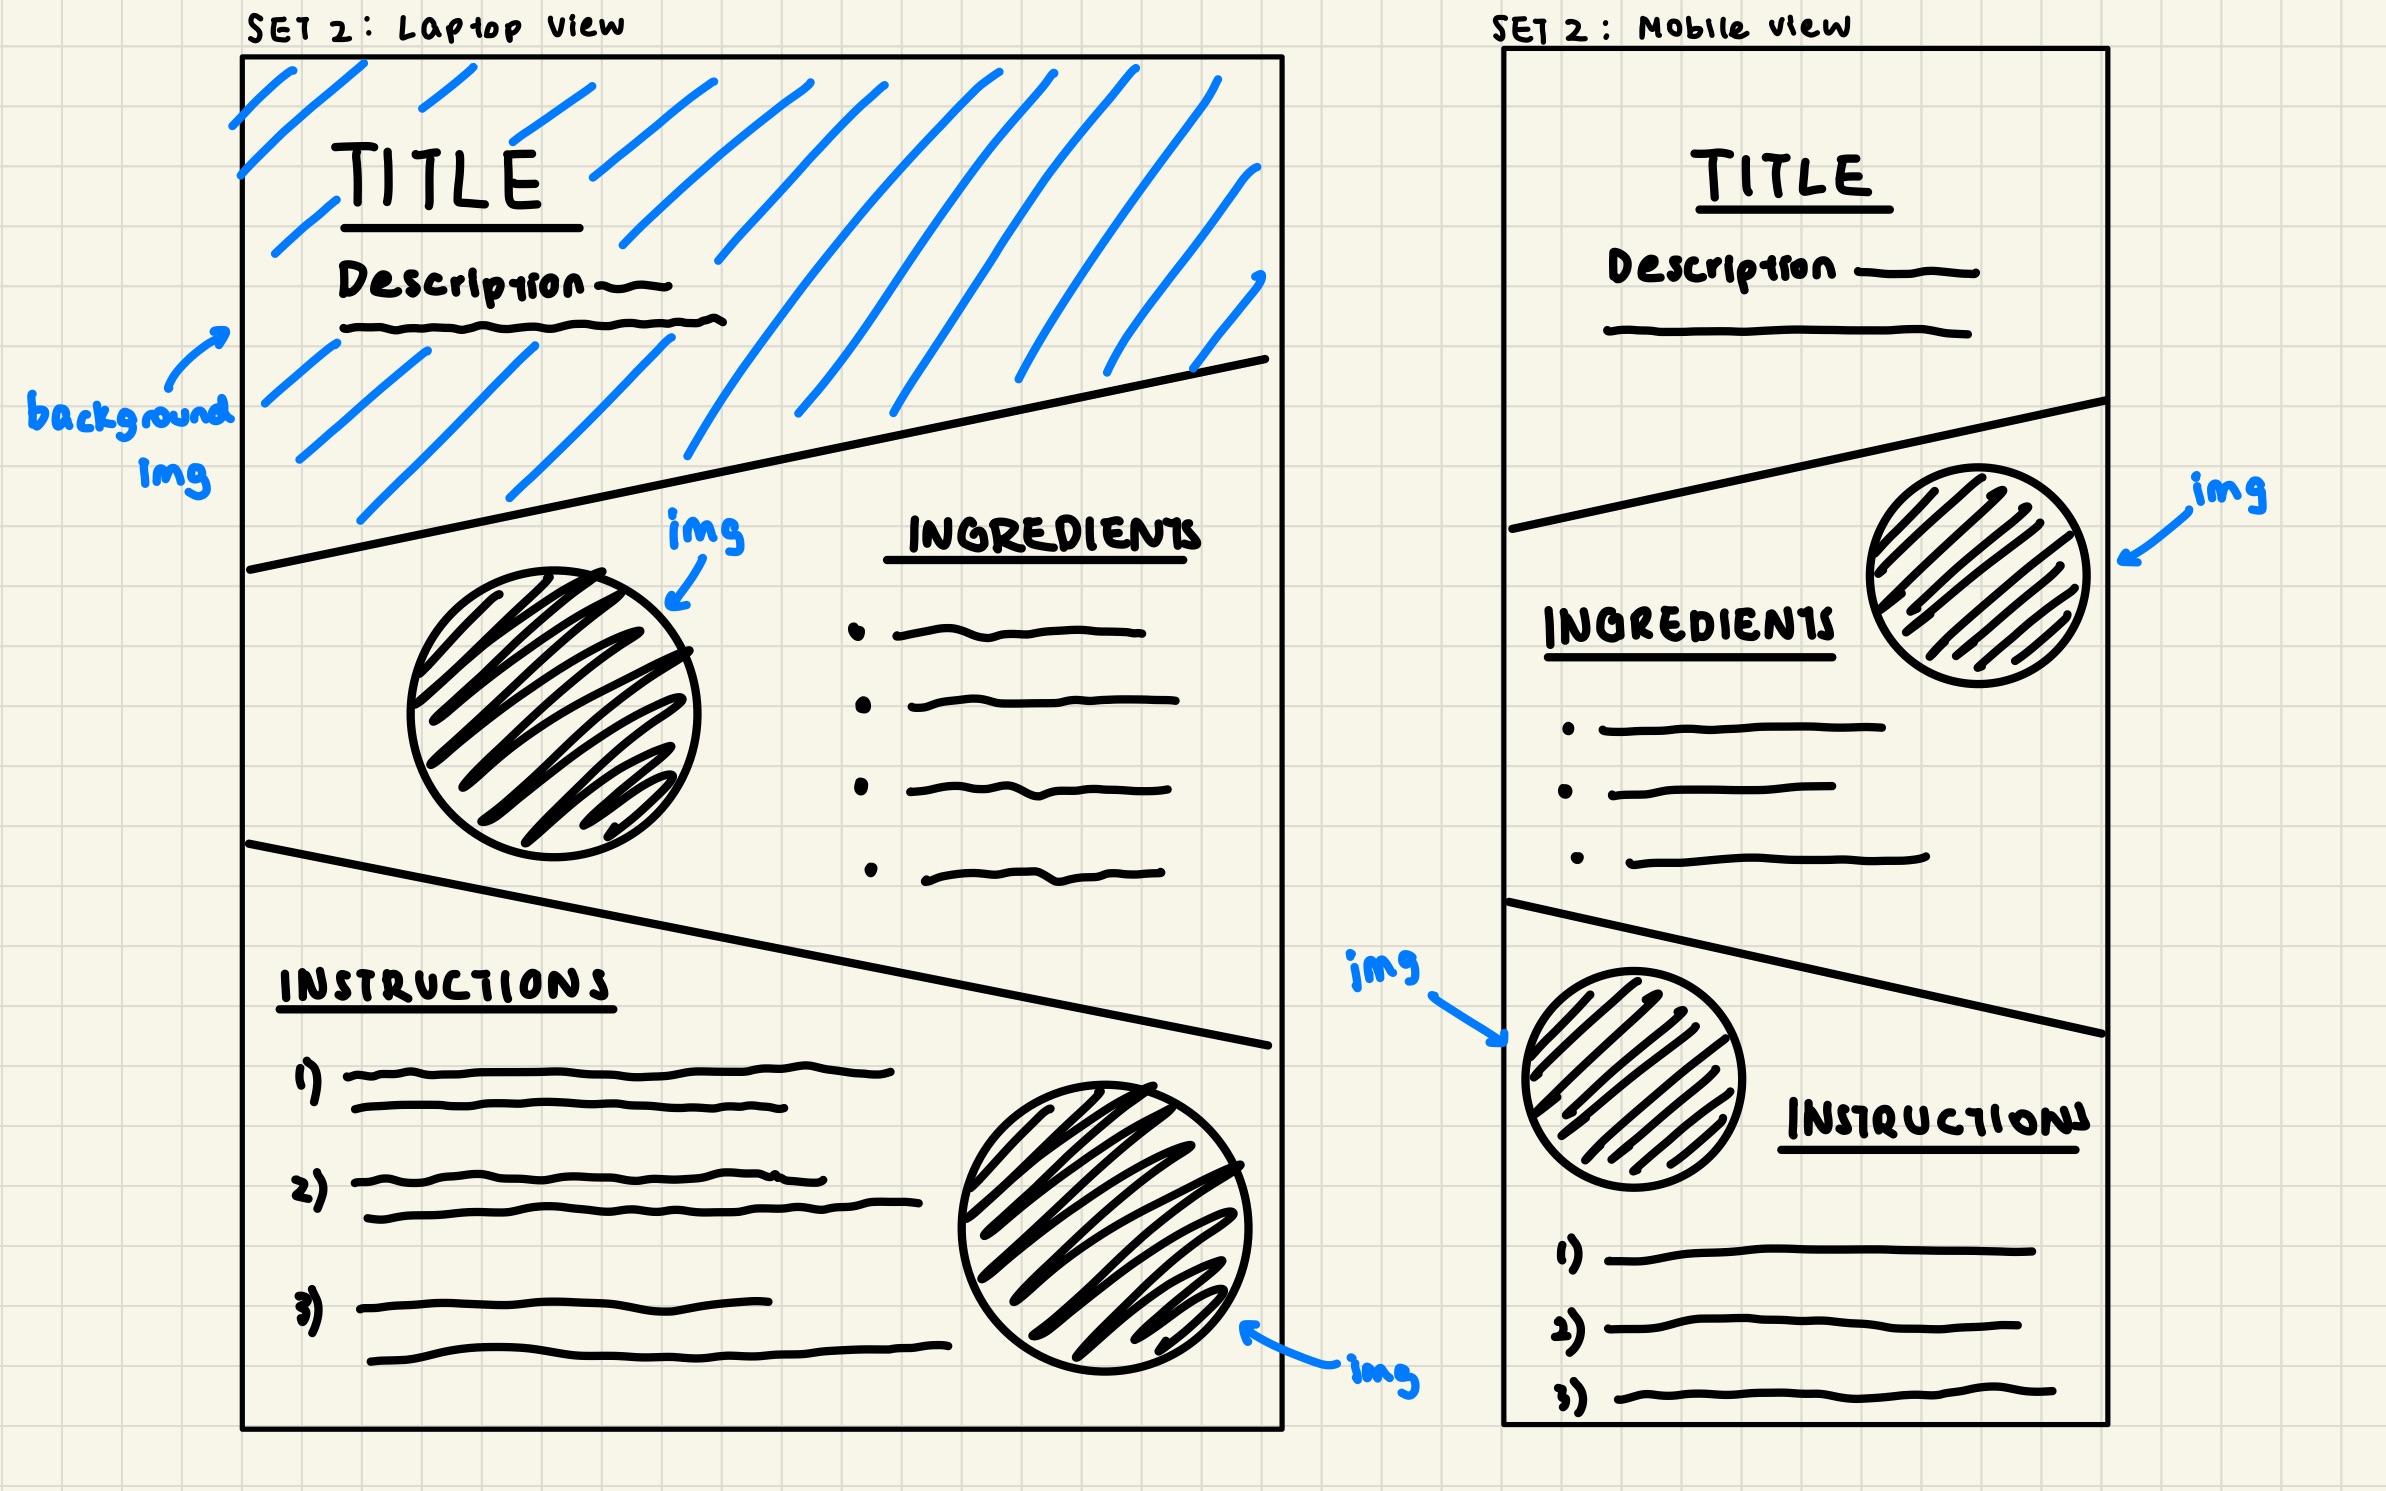 SET 2: Laptop View
TITLE
Description
background
img
img
INGREDIENTS
INSTRUCTIONS
1)
2)
3)
img
SET 2: Mobile View
TITLE
Description
img
INGREDIENTS
img
INSTRUCTIONS
1)
2)
3)